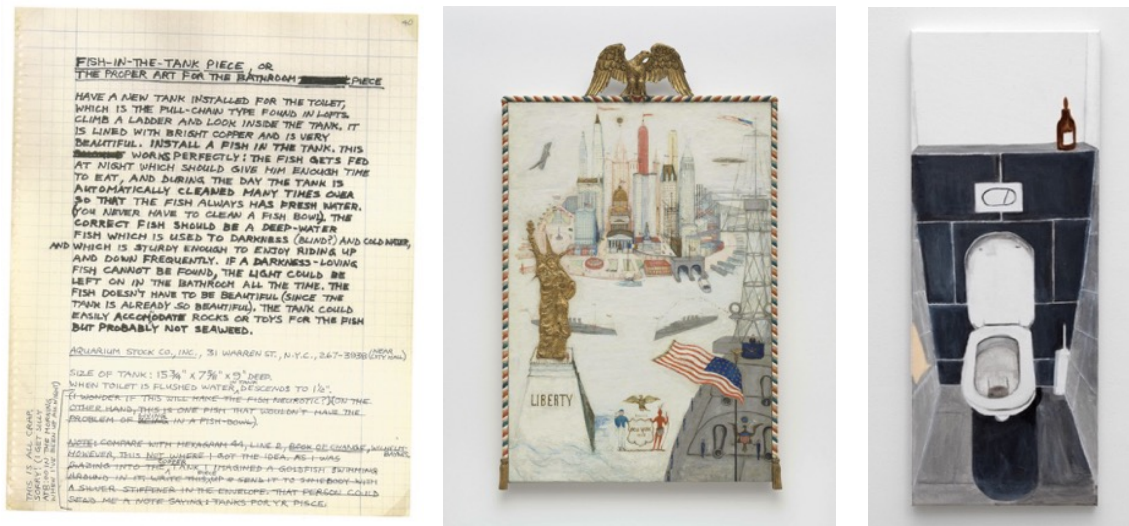 40
FISH-IN-THE-TANK PIECE, OR
THE PROPER ART FOR THE BATHROOM PIECE
HAVE A NEW TANK INSTALLED FOR THE TOILET,
WHICH IS THE PULL-CHAIN TYPE FOUND IN LOFTS.
CLIMB A LADDER AND LOOK INSIDE THE TANK. IT
IS LINED WITH BRIGHT COPPER AND IS VERY
BEAUTIFUL. INSTALL A FISH IN THE TANK. THIS
WORKS PERFECTLY: THE FISH GETS FED
AT NIGHT WHICH SHOULD GIVE HIM ENOUGH TIME
TO EAT, AND DURING THE DAY THE TANK IS
AUTOMATICALLY CLEANED MANY TIMES OVER
SO THAT THE FISH ALWAYS HAS FRESH WATER.
(YOU NEVER HAVE TO CLEAN A FISH BOWL). THE
CORRECT FISH SHOULD BE A DEEP-WATER
FISH WHICH IS USED TO DARKNESS (BLIND?) AND COLD WATER,
AND WHICH IS STURDY ENOUGH TO ENJOY RIDING UP
AND DOWN FREQUENTLY. IF A DARKNESS-LOVING
FISH CANNOT BE FOUND, THE LIGHT COULD BE
LEFT ON IN THE BATHROOM ALL THE TIME. THE
FISH DOESN'T HAVE TO BE BEAUTIFUL (SINCE THE
TANK IS ALREADY SO BEAUTIFUL). THE TANK COULD
EASILY ACCOMODATE ROCKS OR TOYS FOR THE FISH
BUT PROBABLY NOT SEAWEED.
AQUARIUM STOCK CO., INC., 31 WARREN ST., N.Y.C., 267-3938 (NEAR CITY HALL)
SIZE OF TANK: 15 3/4" X 7 5/8" X 9" DEEP.
WHEN TOILET IS FLUSHED WATER IN TANK DESCENDS TO 1 1/2".
(I WONDER IF THIS WILL MAKE THE FISH NEUROTIC?) (ON THE
OTHER HAND, THIS IS ONE FISH THAT WOULDN'T HAVE THE
PROBLEM OF LIVING IN A FISH-BOWL).
NOTE: COMPARE WITH HEXAGRAM 44, LINE 2, BOOK OF CHANGE,
HOWEVER, THIS NOT WHERE I GOT THE IDEA. AS I WAS
GAZING INTO THE COPPER TANK I IMAGINED A GOLDFISH SWIMMING
AROUND IN IT; WRITE THIS UP & SEND IT TO SOMEBODY WITH
A SILVER STIFFENER IN THE ENVELOPE. THAT PERSON COULD
SEND ME A NOTE SAYING: TANKS FOR YR PISCE.
THIS IS ALL CRAP.
SORRY! (I GET SILLY
AT 8:00 IN THE MORNING
WHEN I'VE BEEN UP ALL NIGHT)
LIBERTY